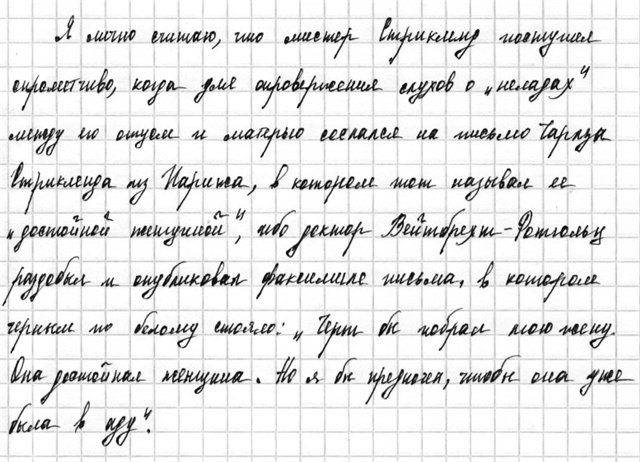 Я лично считаю, что мистер Стрикленд поступил
опрометчиво, когда для опровержения слухов о „неладах“
между его отцом и матерью сослался на письмо Чарлза
Стрикленда из Парижа, в котором тот называл ее
„достойной женщиной“, ибо доктор Вейтбрехт-Ротгольц
раздобыл и опубликовал факсимиле письма, в котором
черным по белому стояло: „Черт бы побрал мою жену.
Она достойная женщина. Но я бы предпочел, чтобы она уже
была в аду“.